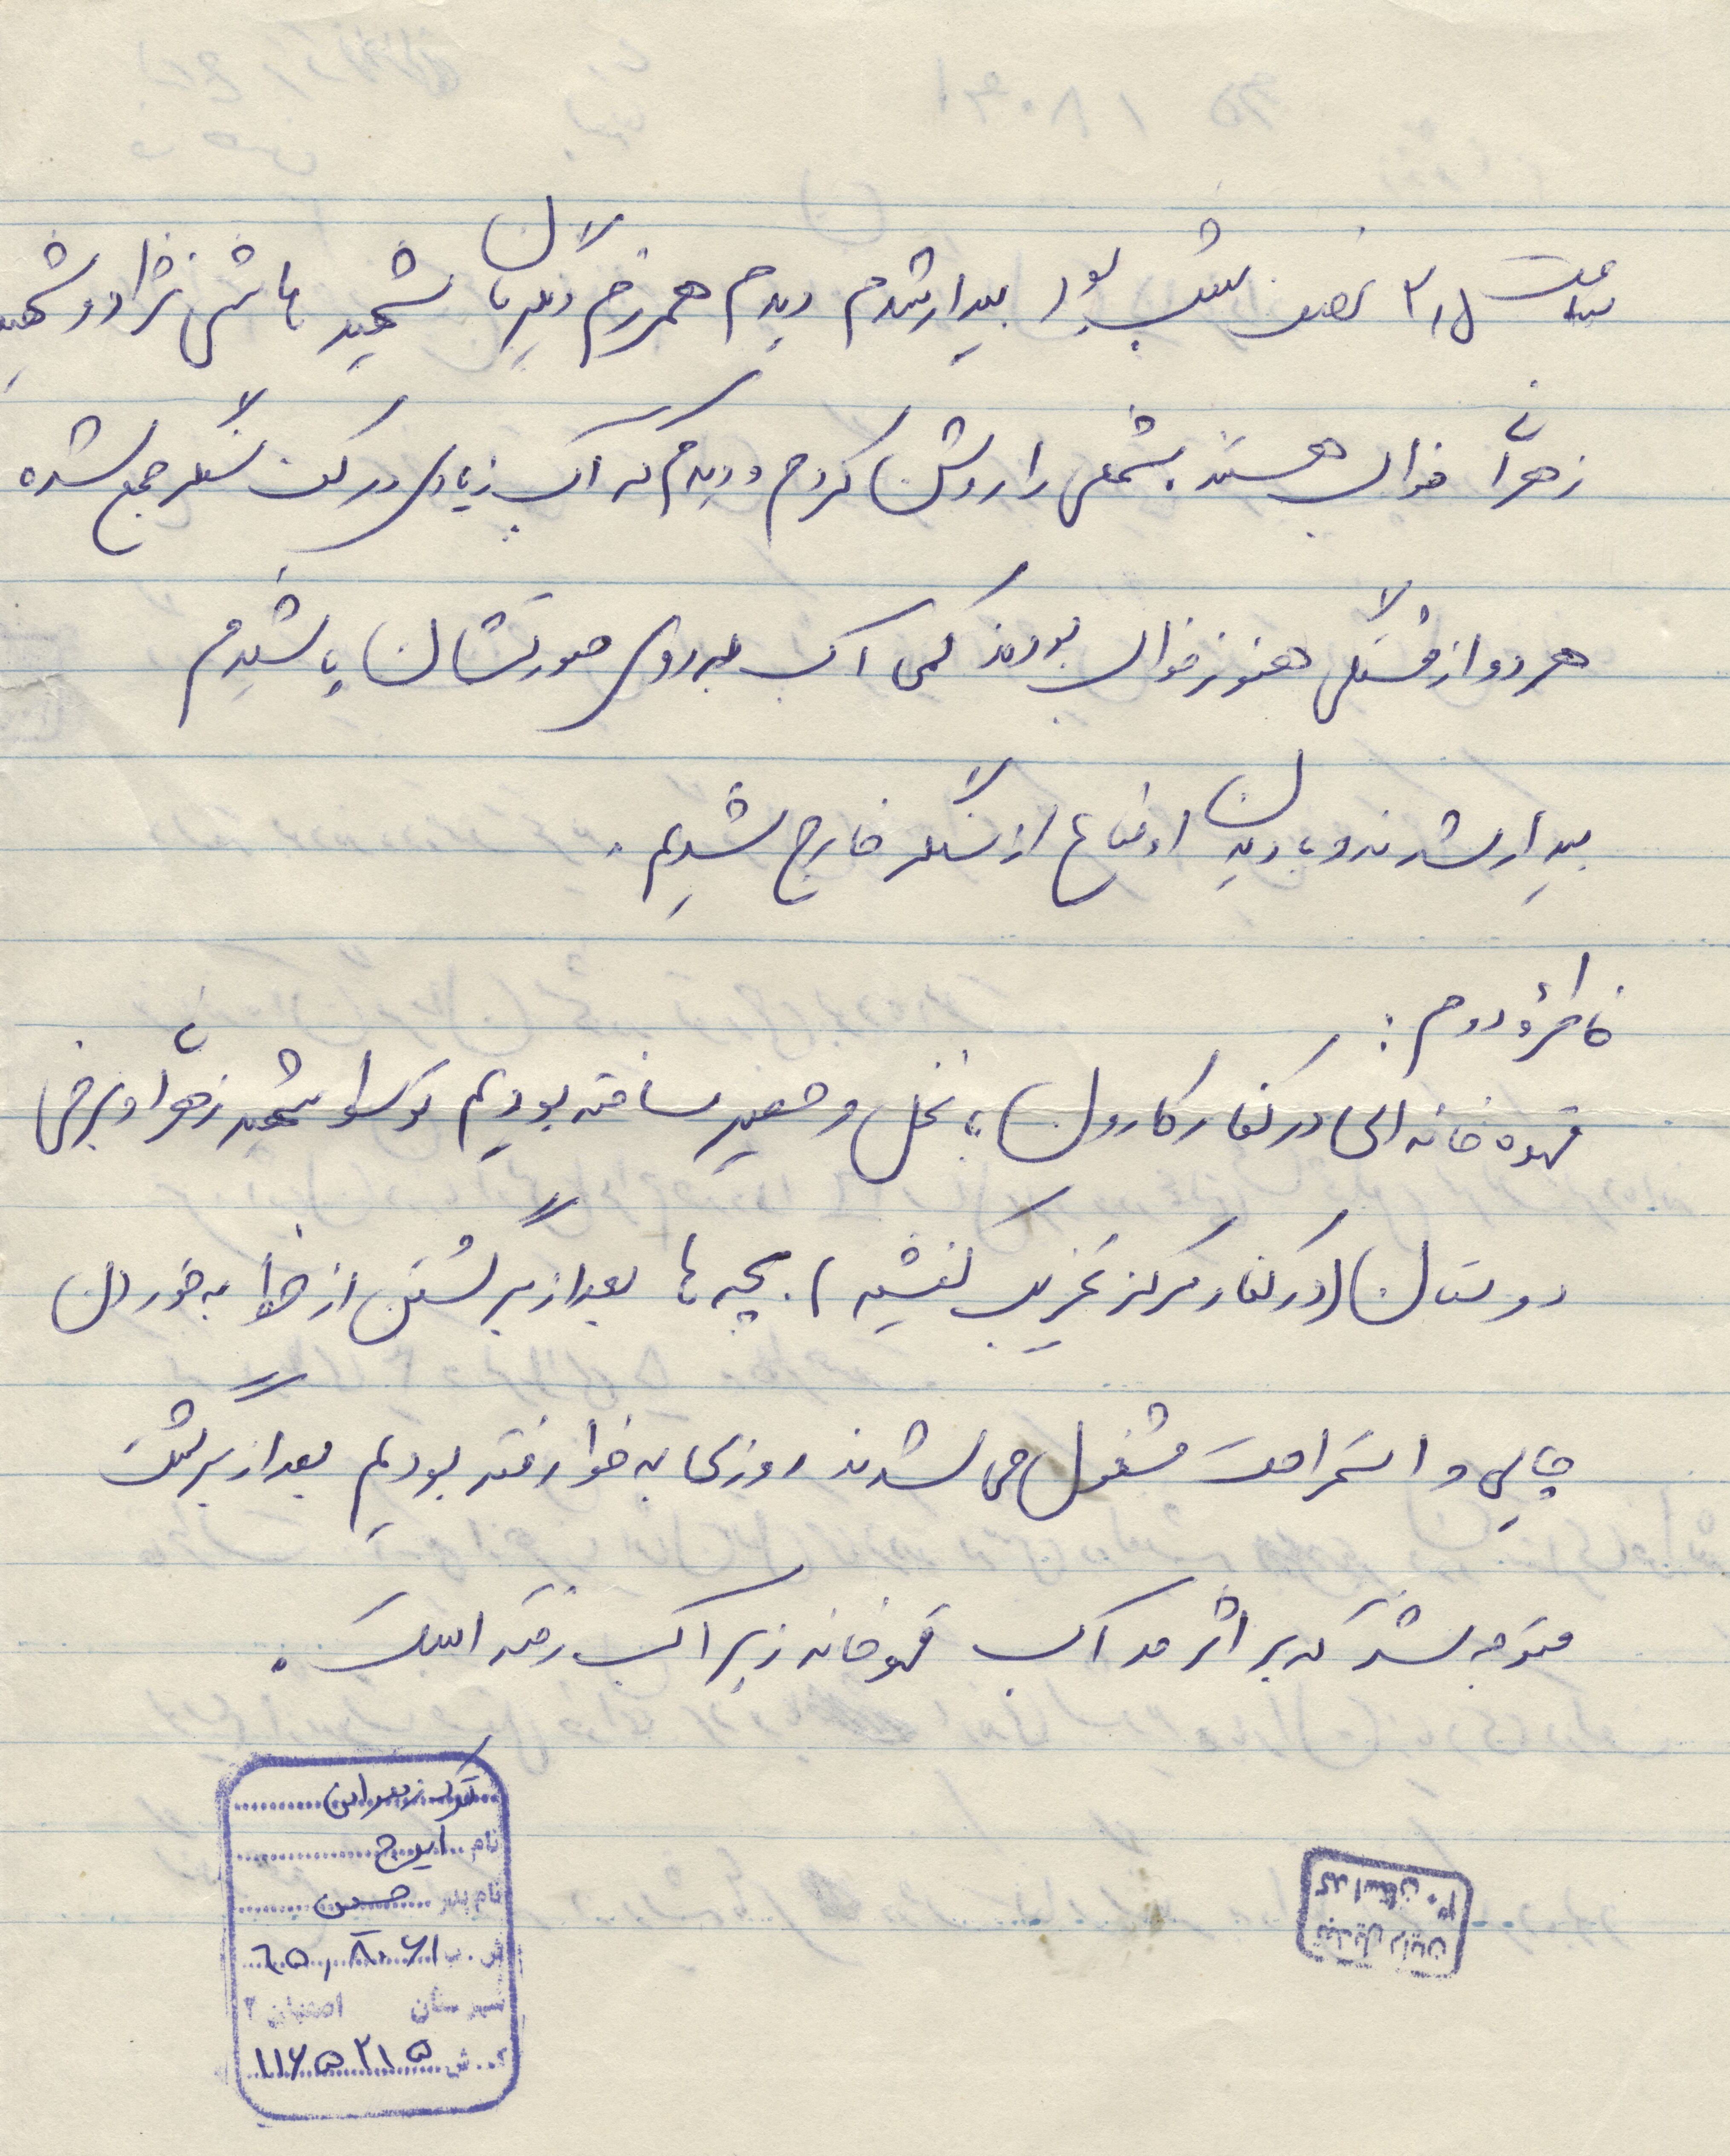 ساعت ۳،۵ نصف شب بود بیدار شدم دیدم همرزم دیگرمان شهید هاشمی نژاد و شهید
زهرائی خواب هستند. شمعی را روشن کردم و دیدم که آب زیادی در کف سنگر جمع شده
هر دو از خستگی هنوز خواب بودند کمی آب به روی صورتشان پاشیدم
بیدار شدند و با دیدن اوضاع از سنگر خارج شدیم.
خاطرهٔ دوم:
قهوه خانه ای در کنار کارون با نخل و حصیر ساخته بودیم توسط شهید زهرائی و برخی
دوستان (در کنار مرکز تخریب کفیشه). بچه ها بعد از برگشتن از خط به خوردن
چایی و استراحت مشغول می شدند روزی به خط رفته بودیم بعد از برگشت
متوجه شدیم که بر اثر مد آب قهوه خانه زیر آب رفته است.
نام ایرج
نام پدر حسن
ش.ب ۶۵،۸۰۶۱
شهرستان اصفهان ۲
ک.ش ۱۱۶۵۲۱۵
تبدیل رایان
کد اسکان ۳۰